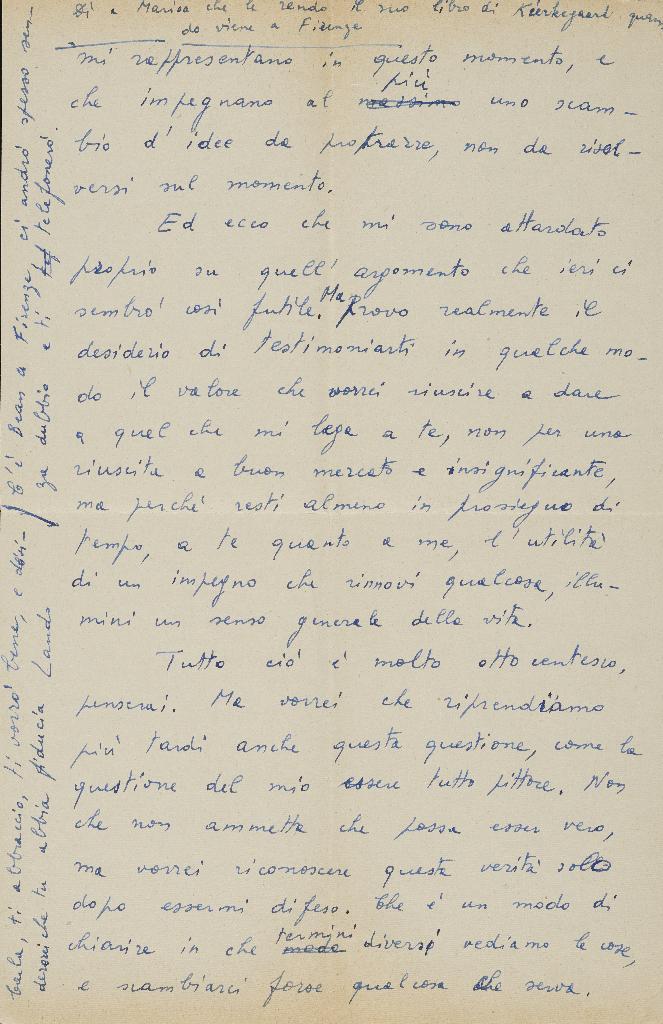 Di a Marisa che le rendo il suo libro di Kierkegaard quan-
do viene a Firenze
mi rappresentano in questo momento, e
che impegnano al più massimo uno scam-
bio d'idee da protrarre, non da risol-
versi sul momento.
Ed ecco che mi sono attardato
proprio su quell'argomento che ieri ci
sembrò così futile. Ma provo realmente il
desiderio di testimoniarti in qualche mo-
do il valore che vorrei riuscire a dare
a quel che mi lega a te, non per una
riuscita a buon mercato e insignificante,
ma perché resti almeno in prosieguo di
tempo, a te quanto a me, l'utilità
di un impegno che rinnovi qualcosa, illu-
mini un senso generale della vita.
Tutto ciò è molto ottocentesco,
penserai. Ma vorrei che riprendiamo
più tardi anche questa questione, come la
questione del mio essere tutto pittore. Non
che non ammetta che possa esser vero,
ma vorrei riconoscere questa verità solo
dopo essermi difeso. Che è un modo di
chiarire in che termini modo diversi vediamo le cose,
e scambiarci forse qualcosa che serva.
ti abbraccio, ti vorrò bene, e desi-
dererei che tu abbia fiducia Lando
C'è a Firenze, ci andrò spesso sen-
za dubbio e ti tef telefonerò.